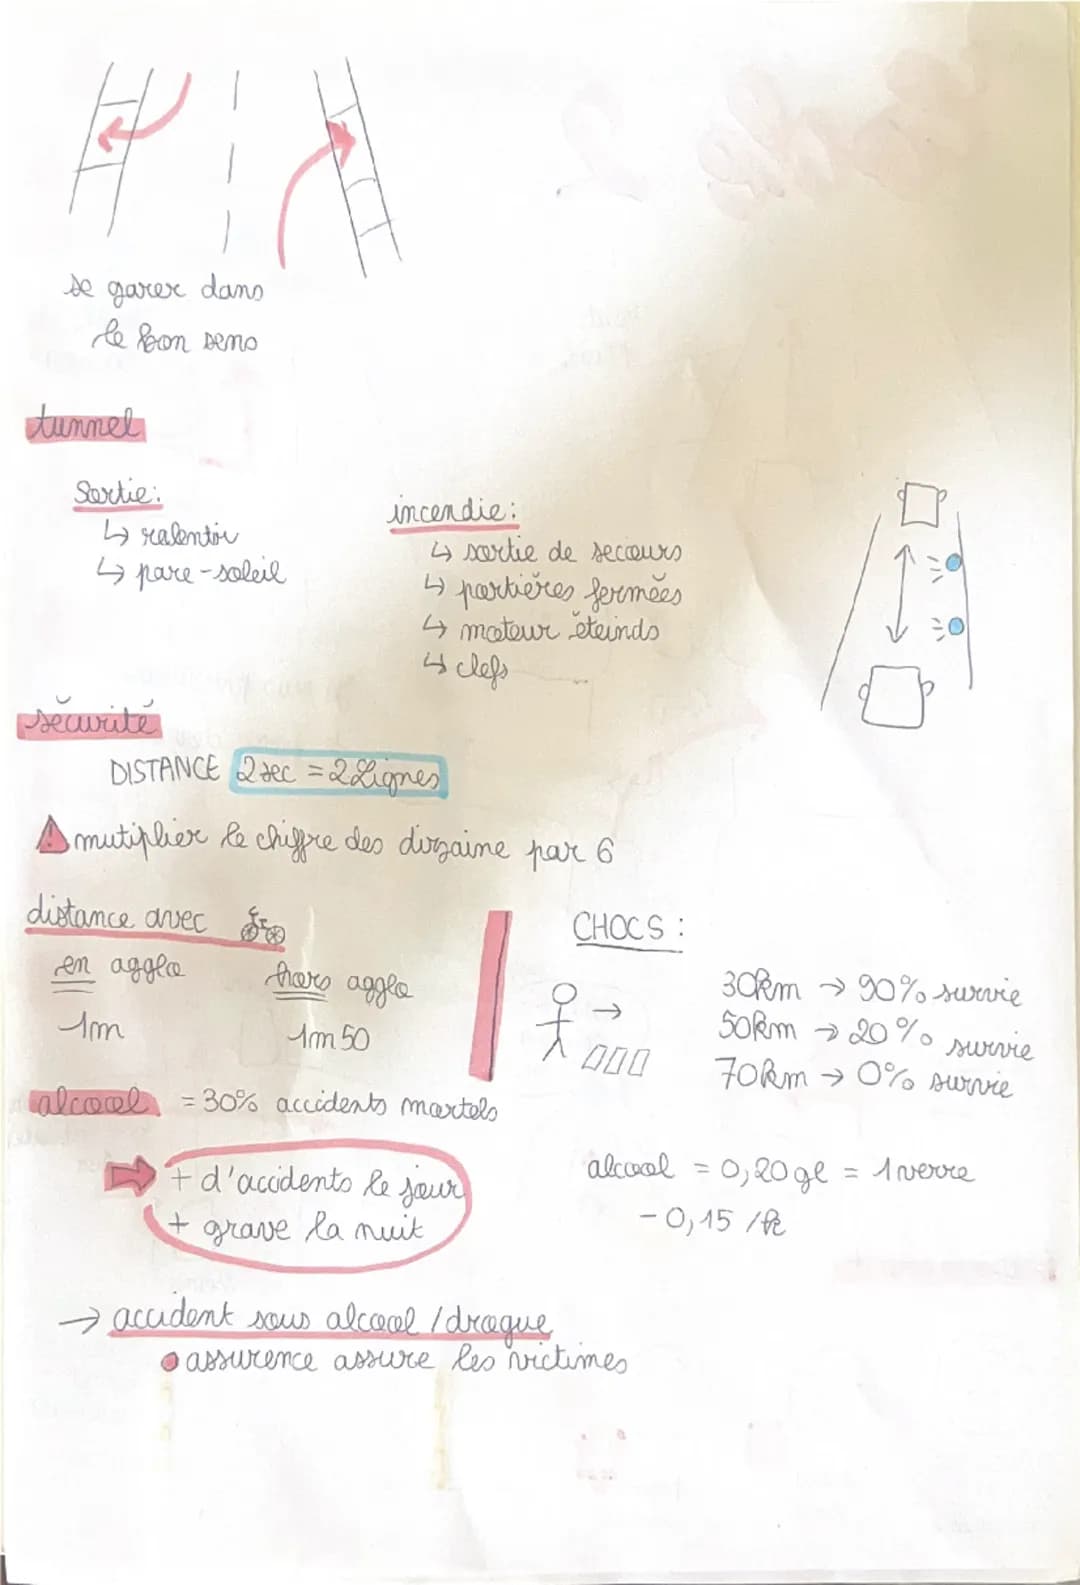 se garer dans
le bon sens
tunnel
Sortie:
↳ ralentir
↳ pare-soleil
incendie:
↳ sortie de secours
↳ portières fermées
↳ moteur éteinds
↳ clefs
sécurité
DISTANCE 2 sec = 2 Lignes
mutiplier le chiffre des dizaine par 6
distance avec
en agglo
1m
hors agglo
1m50
CHOCS :
30km → 90% survie
50km → 20% survie
70km → 0% survie
alcool = 30% accidents mortels
+ d'accidents le jour
+ grave la nuit
alcool = 0,20gl = 1 verre
- 0,15 /h
→ accident sous alcool / drogue
• assurence assure les victimes